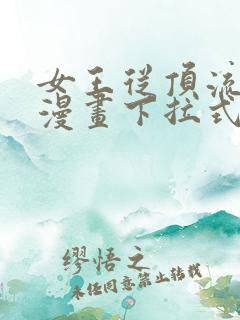 女王從頂流
漫畫下拉式
繆悟之
未经同意禁止转载